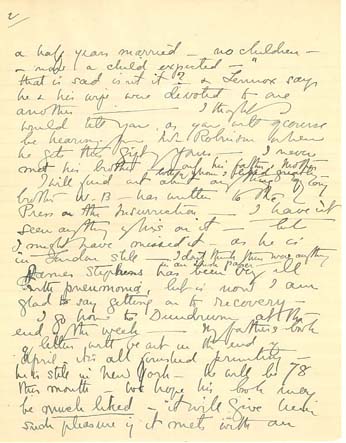 2/
a half years married — no children —
& now a child expected —"
that is sad isn't it? & Lennox says
he & his wife were devoted to one
another — I thought I
would tell you as you will of course
be hearing from Mr Robinson when
he gets the girl yours. I never
met his brother his father & mother
I will find out about anything of my
brother W. B — has written to the
Press on the Insurrection — I have not
seen anything of his on it — but
I might have missed it as he is
in London still — I don't think there was anything
in an Irish paper
James Stephens has been very ill
with pneumonia, but is now I am
glad to say getting on to recovery —
I go home to Dundrum at the
end of the week — My father's book
of letters will be out in the end of
April — it is all finished printing —
he is still in New York — He will be 78
this month — we hope his book may
be much liked — it will give him
such pleasure if it met with an